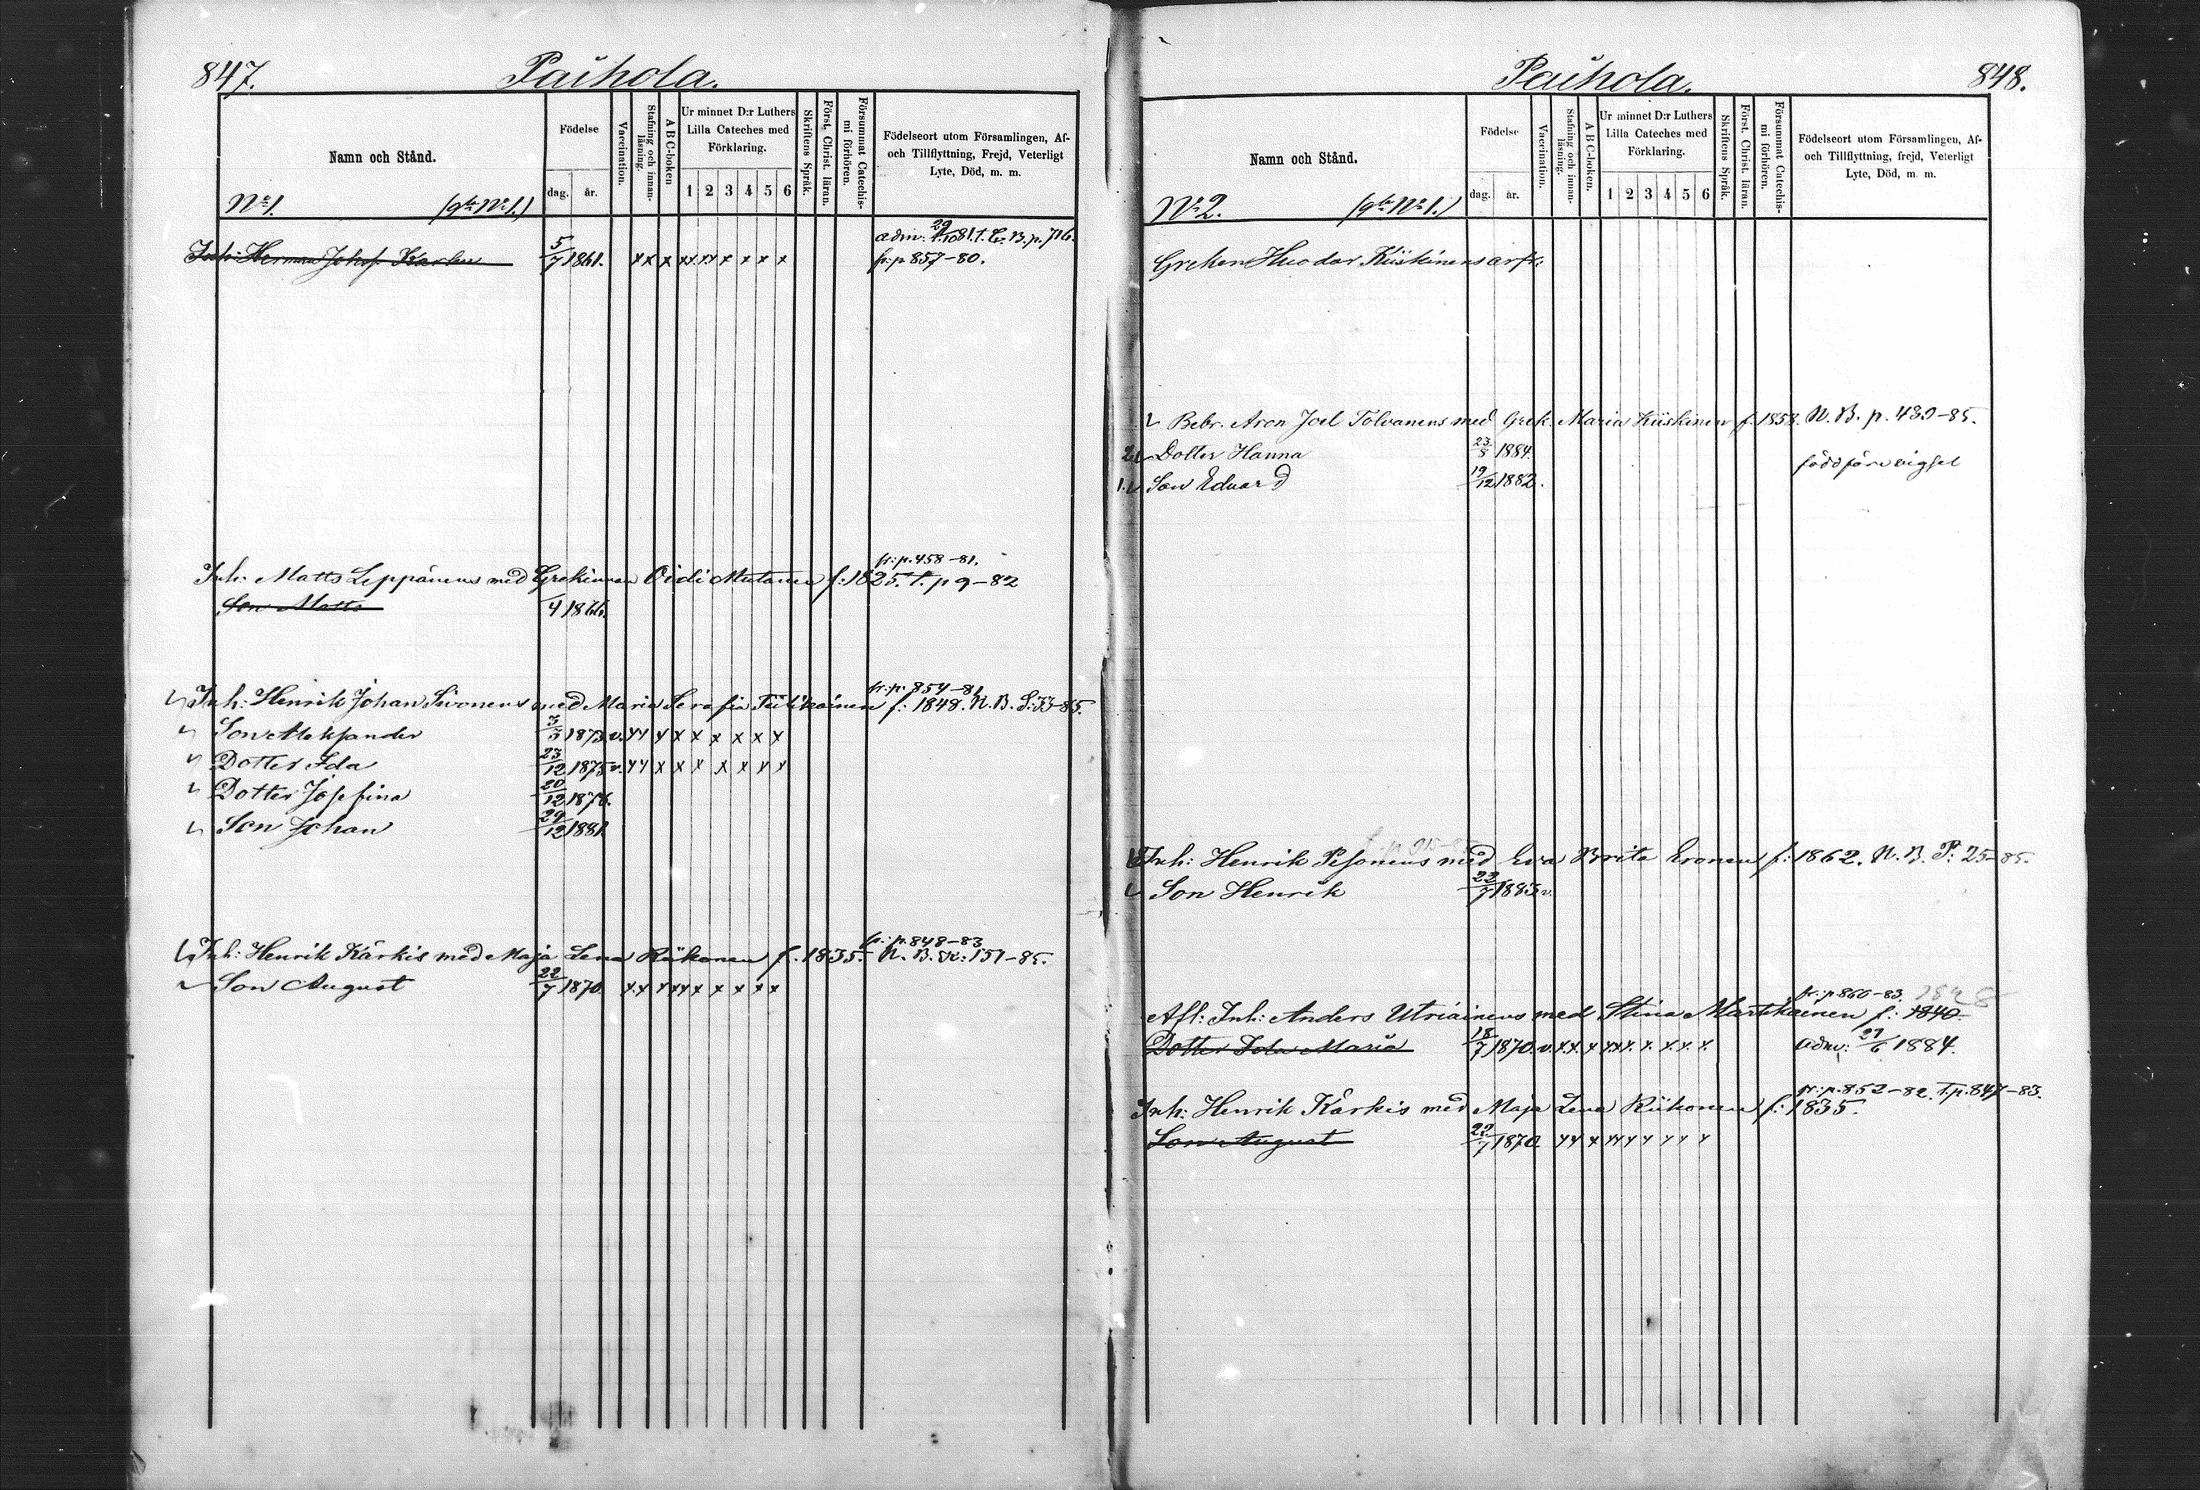 847.
Paihola.
Namn och Stånd.
Födelse
dag. år.
Vaccination.
Stafning och innanläsning.
A B C-boken
Ur minnet D:r Luthers Lilla Cateches med Förklaring.
1 2 3 4 5 6
Skriftens Språk.
Först. Christ. läran.
Försummat Catechismi förhören.
Födelseort utom Församlingen, Af- och Tillflyttning, Frejd, Veterligt Lyte, Död, m. m.
No 1. (gla No 1.)
adm: 29/10 81. t. L. B. p. 716.
Inh: Herman Johsf. 5/7 1861. x x x x x x x x x x fr: p 857-80.
fr: p. 458-81.
Inh: Matts Leppänens med Grekinnan Oidi Mutanen f: 1825. T. p 9-82
Son Matts /4 1866.
fr: p. 854-81
Inh: Henrik Johan Sivonens med Maria Serafia f: 1848. N. B. S: 33-85.
Son Aleksander 3/3 1873 v. x x x x x x x x x
Dotter Ida 23/12 1875 v. x x x x x x x x x
Dotter Josefina 20/12 1878.
Son Johan 29/12 1881.
fr: p. 848-83
Inh: Henrik Kärkis med Maja Lena Riikonen f. 1835. N. B. K: 151-85.
Son August 22/7 1870. x x x x x x x x x x
Paihola.
848.
Namn och Stånd.
Födelse
dag. år.
Vaccination.
Stafning och innanläsning.
A B C-boken.
Ur minnet D:r Luthers Lilla Cateches med Förklaring.
1 2 3 4 5 6
Skriftens Språk.
Först. Christ. läran.
Försummat Catechismi förhören.
Födelseort utom Församlingen, Af- och Tillflyttning, frejd, Veterligt Lyte, Död, m. m.
No 2. (gla No 1.)
Greken Huodar Kiiskinens arfv:
Bebr. Aron Joel Tolvanens med Grek. Maria Kiiskinen f. 1858. N. B. p. 430-85.
2. Dotter Hanna 23/8 1884.
född före vigsel
1. Son Eduard 19/12 1882.
Inh: Henrik Pesonens med Eva Brita Eronen f: 1862. N. B. P: 25-85.
Son Henrik 22/7 1883 v.
fr: p 860-83. 1828
Afl: Inh: Anders Utriainens med Stina Martikainen f: 1840
Dotter Maria 18/7 1870. v. x x x x x x x x x x adm: 29/6 1884.
fr: p. 852-82. T. p. 847-83.
Inh: Henrik Kärkis med Maja Lena Riikonen f: 1835.
Son August 22/7 1870 x x x x x x x x x x